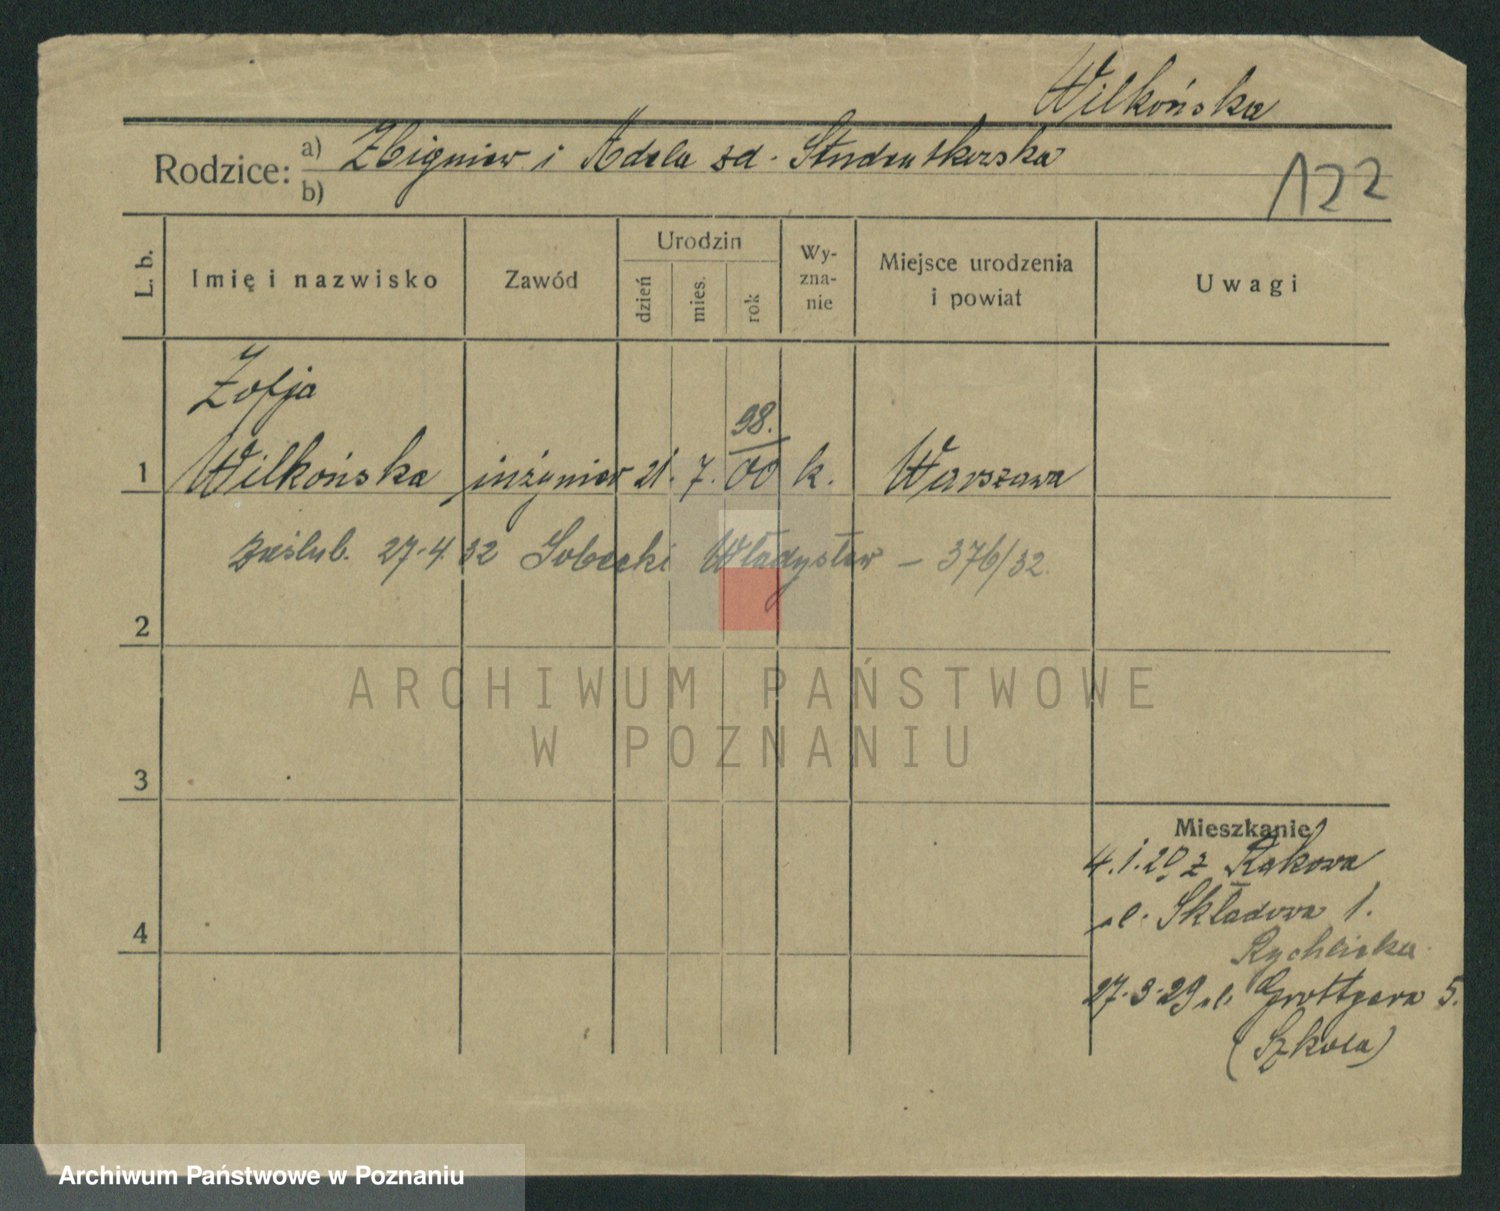 Wilkońska
Rodzice: a) Zbigniew i Adela zd.
b)
122
L. b. Imię i nazwisko Zawód Urodzin dzień mies. rok Wy-zna-nie Miejsce urodzenia i powiat Uwagi
Zofja
98.
1 Wilkońska inżynier 21. 7. 00 k. Warszawa
zaślub. 27-4 32 Sobecki Władysław – 376/32
2
ARCHIWUM PAŃSTWOWE
W POZNANIU
3
Mieszkanie
4.1.20 z
ul. Składowa 1.
4
Rychlicka
27-3-29 ul. Grottgera 5.
(Szkoła)
Archiwum Państwowe w Poznaniu